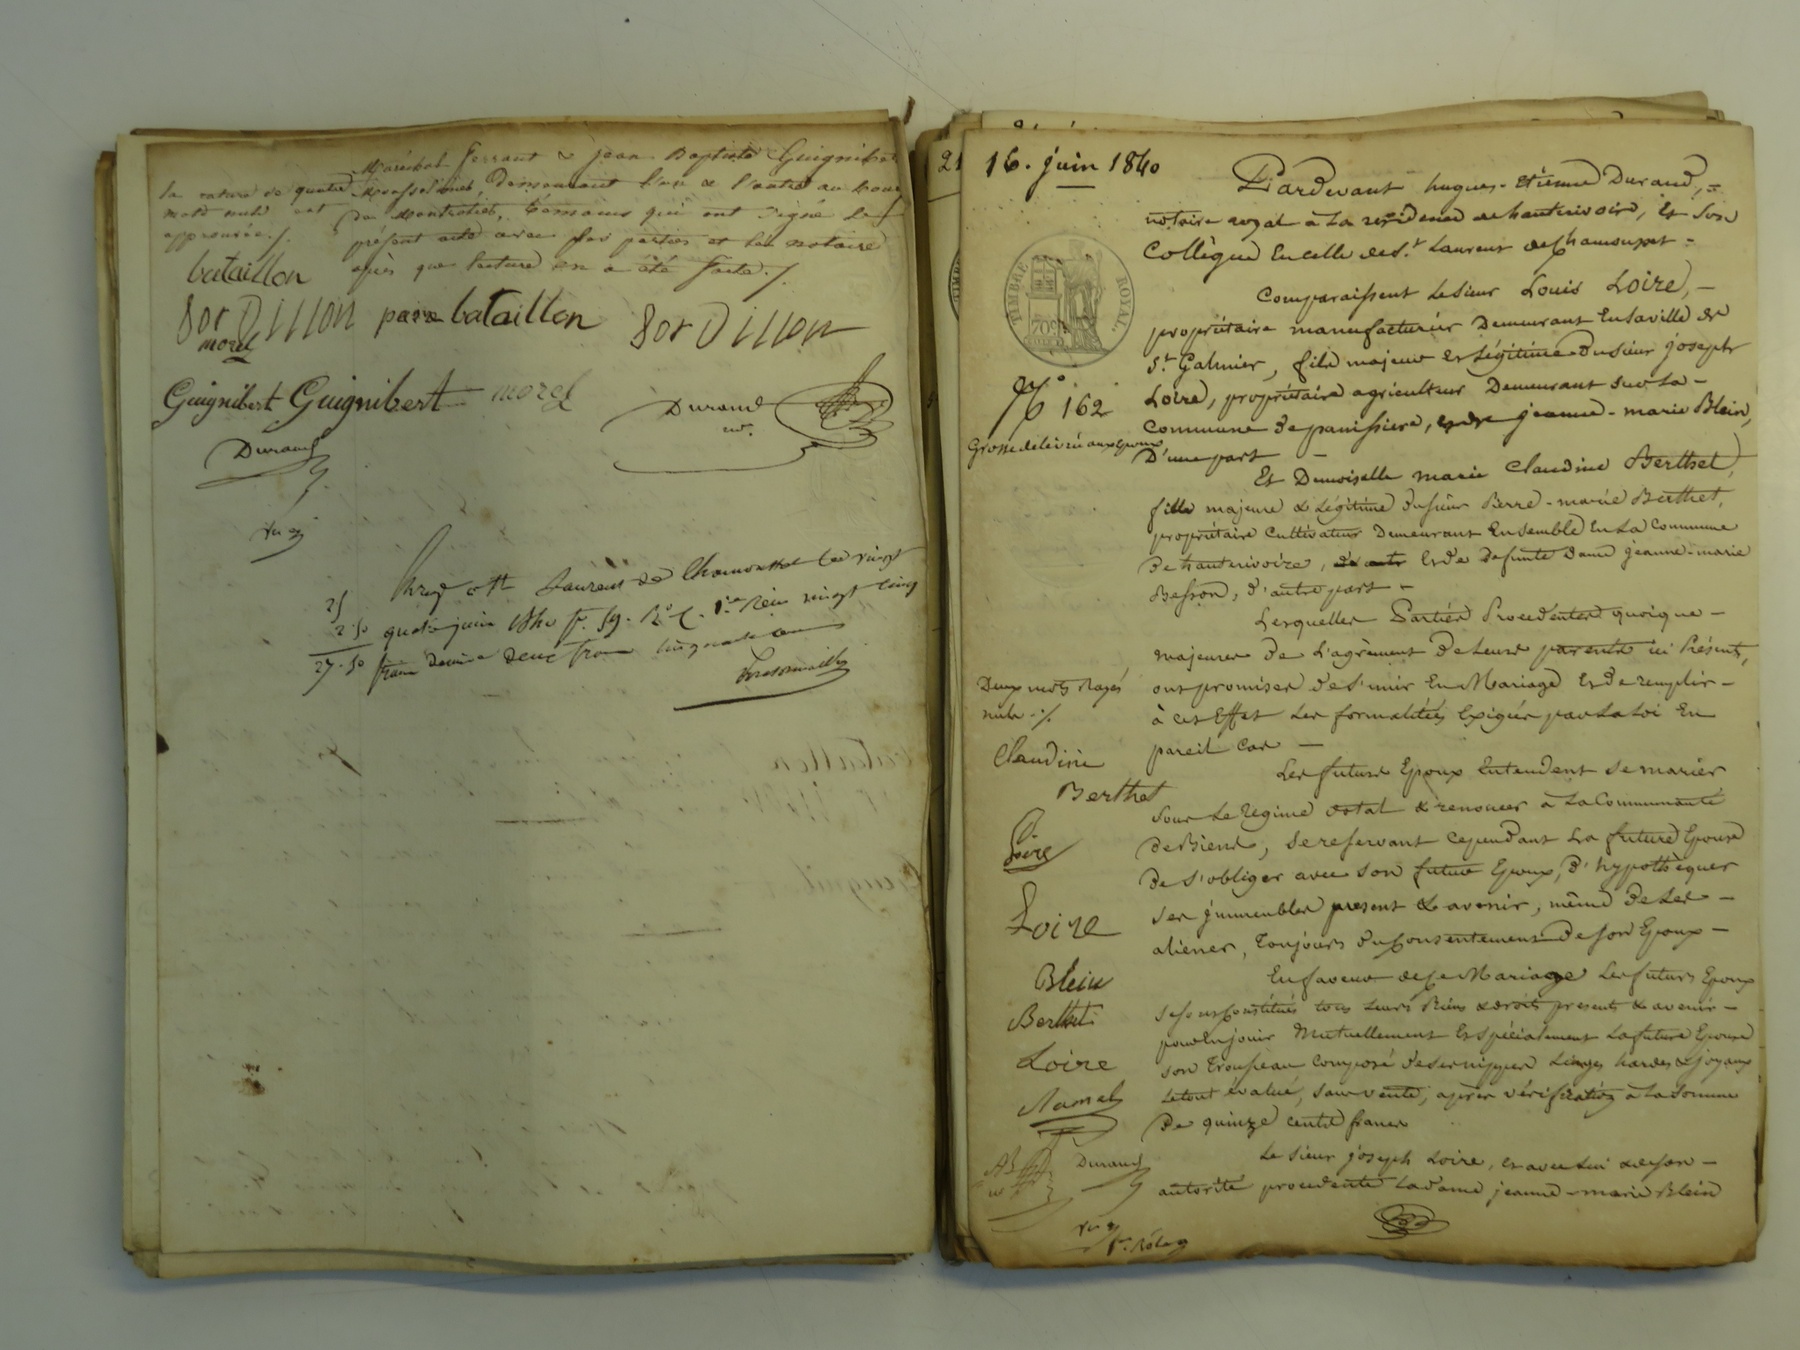 maréchal ferrant & jean Baptiste Guignibert
la rature de quatre
demeurant l'un & l'autre au bourg
mots nuls est
de Montrotier, témoins qui ont signé le
approuvée ./.
présent acte avec les parties et les notaires
après que lecture en a été faite ./.
bataillon
BorDillon pere bataillon BorDillon
morel
Guignibert Guignibert morel
Durand
nre.
Durand
Vu
Enregé à St Laurent de Chamousset le vingt
25
quatre juin 1840 fo. 59. Ro. C. 1re. Reçu vingt cinq
2.50
27.50
francs decime deux francs cinquante cmes
21
16. juin 1840
Pardevant hugues-Etienne Durand, =
notaire royal à la residence de hauterivoire, & Son
Collègue En celle de St. Laurent de Chamousset =
TIMBRE ROYAL
70c
Comparaissent Le sieur Louis Loire, -
propriétaire manufacturier Demeurant En la ville de
St. Galmier, fils majeur & Légitime du sieur joseph
No 162
Loire, propriétaire agriculteur Demeurant sur La -
Commune de panissiere, & de jeanne-marie Blein,
Grosse delivrée aux époux
D'une part -
Et Demoiselle marie Claudine Berthet,
fille majeure & Légitime du sieur Pierre-marie Berthet,
propriétaire Cultivateur Demeurant Ensemble En La Commune
de hauterivoire, Et de Defunte Dame jeanne-marie
Besson, d'autre part -
Lesquelles Parties Procedantes quoique -
majeures De L'agrement De Leurs parents ici Présents,
Deux mots rayés
nuls ./.
ont promises de s'unir En Mariage Et de remplir -
à cet Effet Les formalités Exigées par La Loi En
pareil Cas -
Claudine
Berthet
Les futurs Epoux Entendent se marier
Sous Le Regime dotal & renoncer à La Communauté
De Biens, se reservant Cependant La future Epouse
De s'obliger avec son futur Epoux, D'hypothèquer
Ses jmmeubles present & avenir, même De Les -
aliener, Toujours du Consentement De son Epoux -
Loire
Loire
Blein
Berthet
Loire
En faveur de Ce Mariage Les futurs Epoux
se sont Constitués tous Leurs Biens & droits presents & avenir -
pour En jouir Mutuellement Et spécialement La future Epouse
son Trousseau Composé de ses nippes Linges hardes & joyaux
Le tout évalué, sans vente, après vérification à La Somme
De quinze cents francs
Durand
Le sieur joseph Loire, & avec Lui & de son -
autorité procedante La dame jeanne-marie Blein